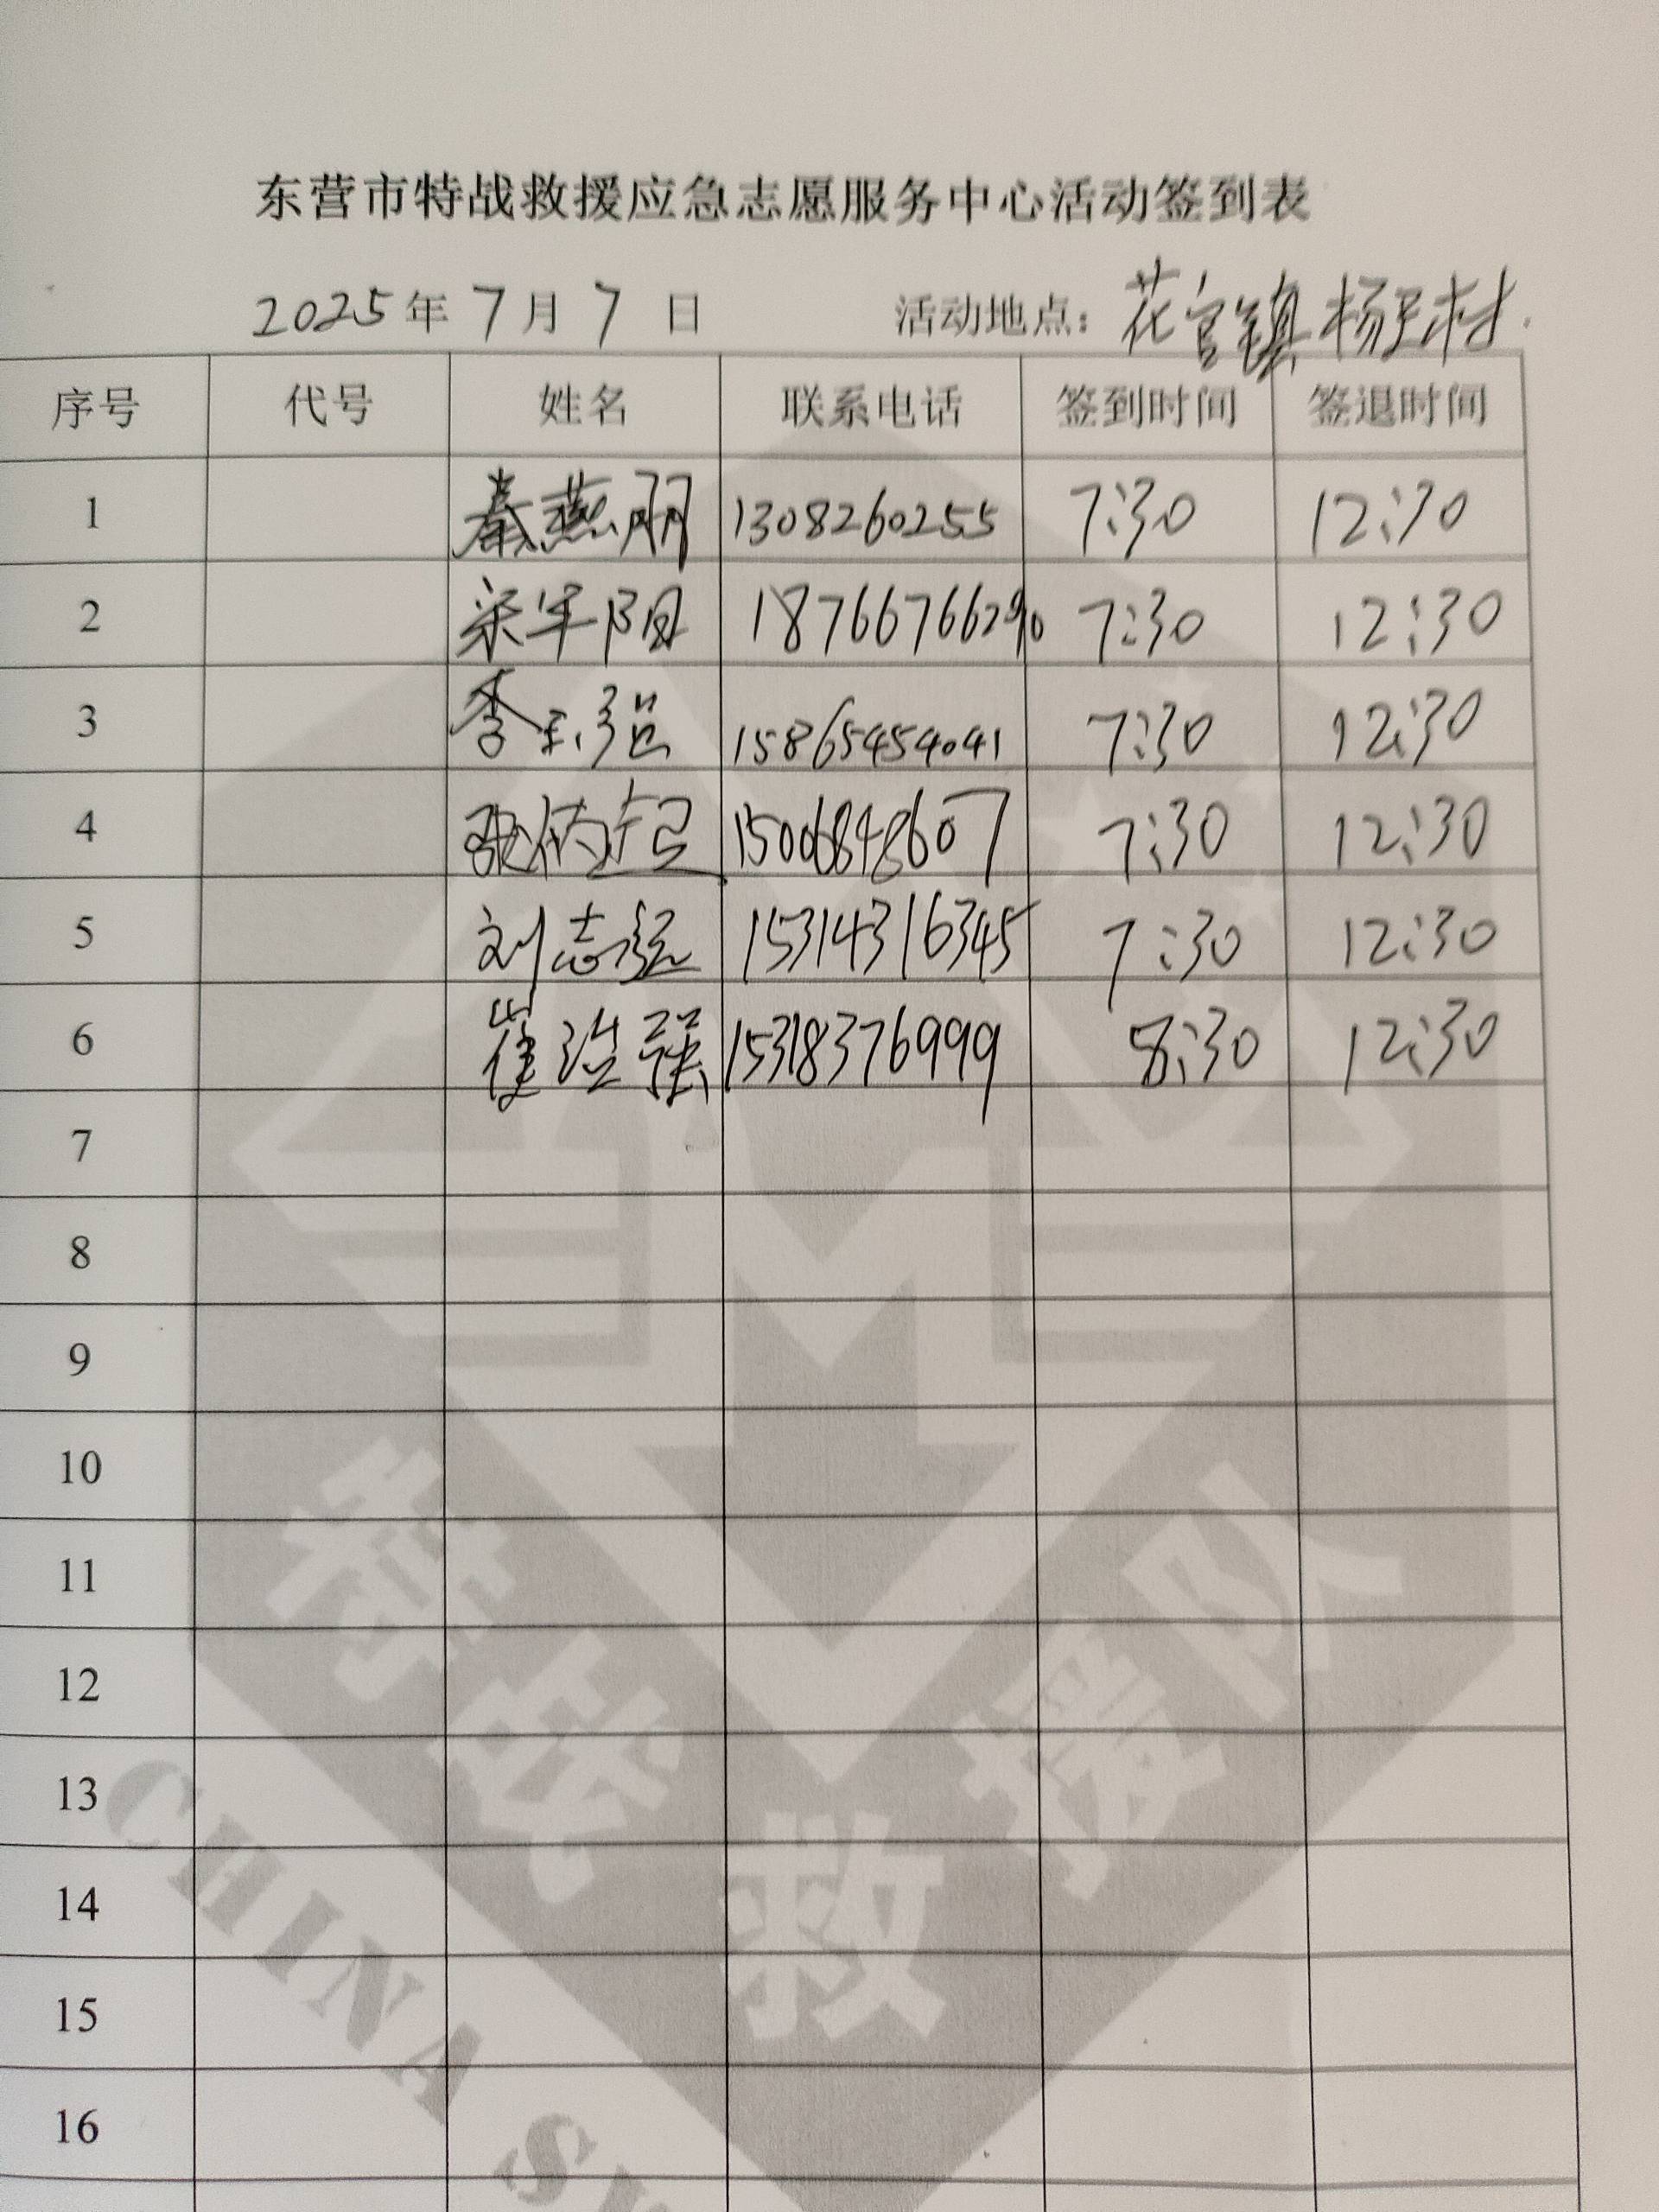 东营市特战救援应急志愿服务中心活动签到表
2025年7月7日 活动地点：花官镇杨王村.
序号 代号 姓名 联系电话 签到时间 签退时间
1 秦燕丽 1308260255 7:30 12:30
2 梁军阳 18766766290 7:30 12:30
3 李玉强 15865454041 7:30 12:30
4 15006848607 7:30 12:30
5 刘志强 15314316345 7:30 12:30
6 崔洪强 15318376999 8:30 12:30
7
8
9
10
11
12
13
14
15
16
特战救援队
CHINA